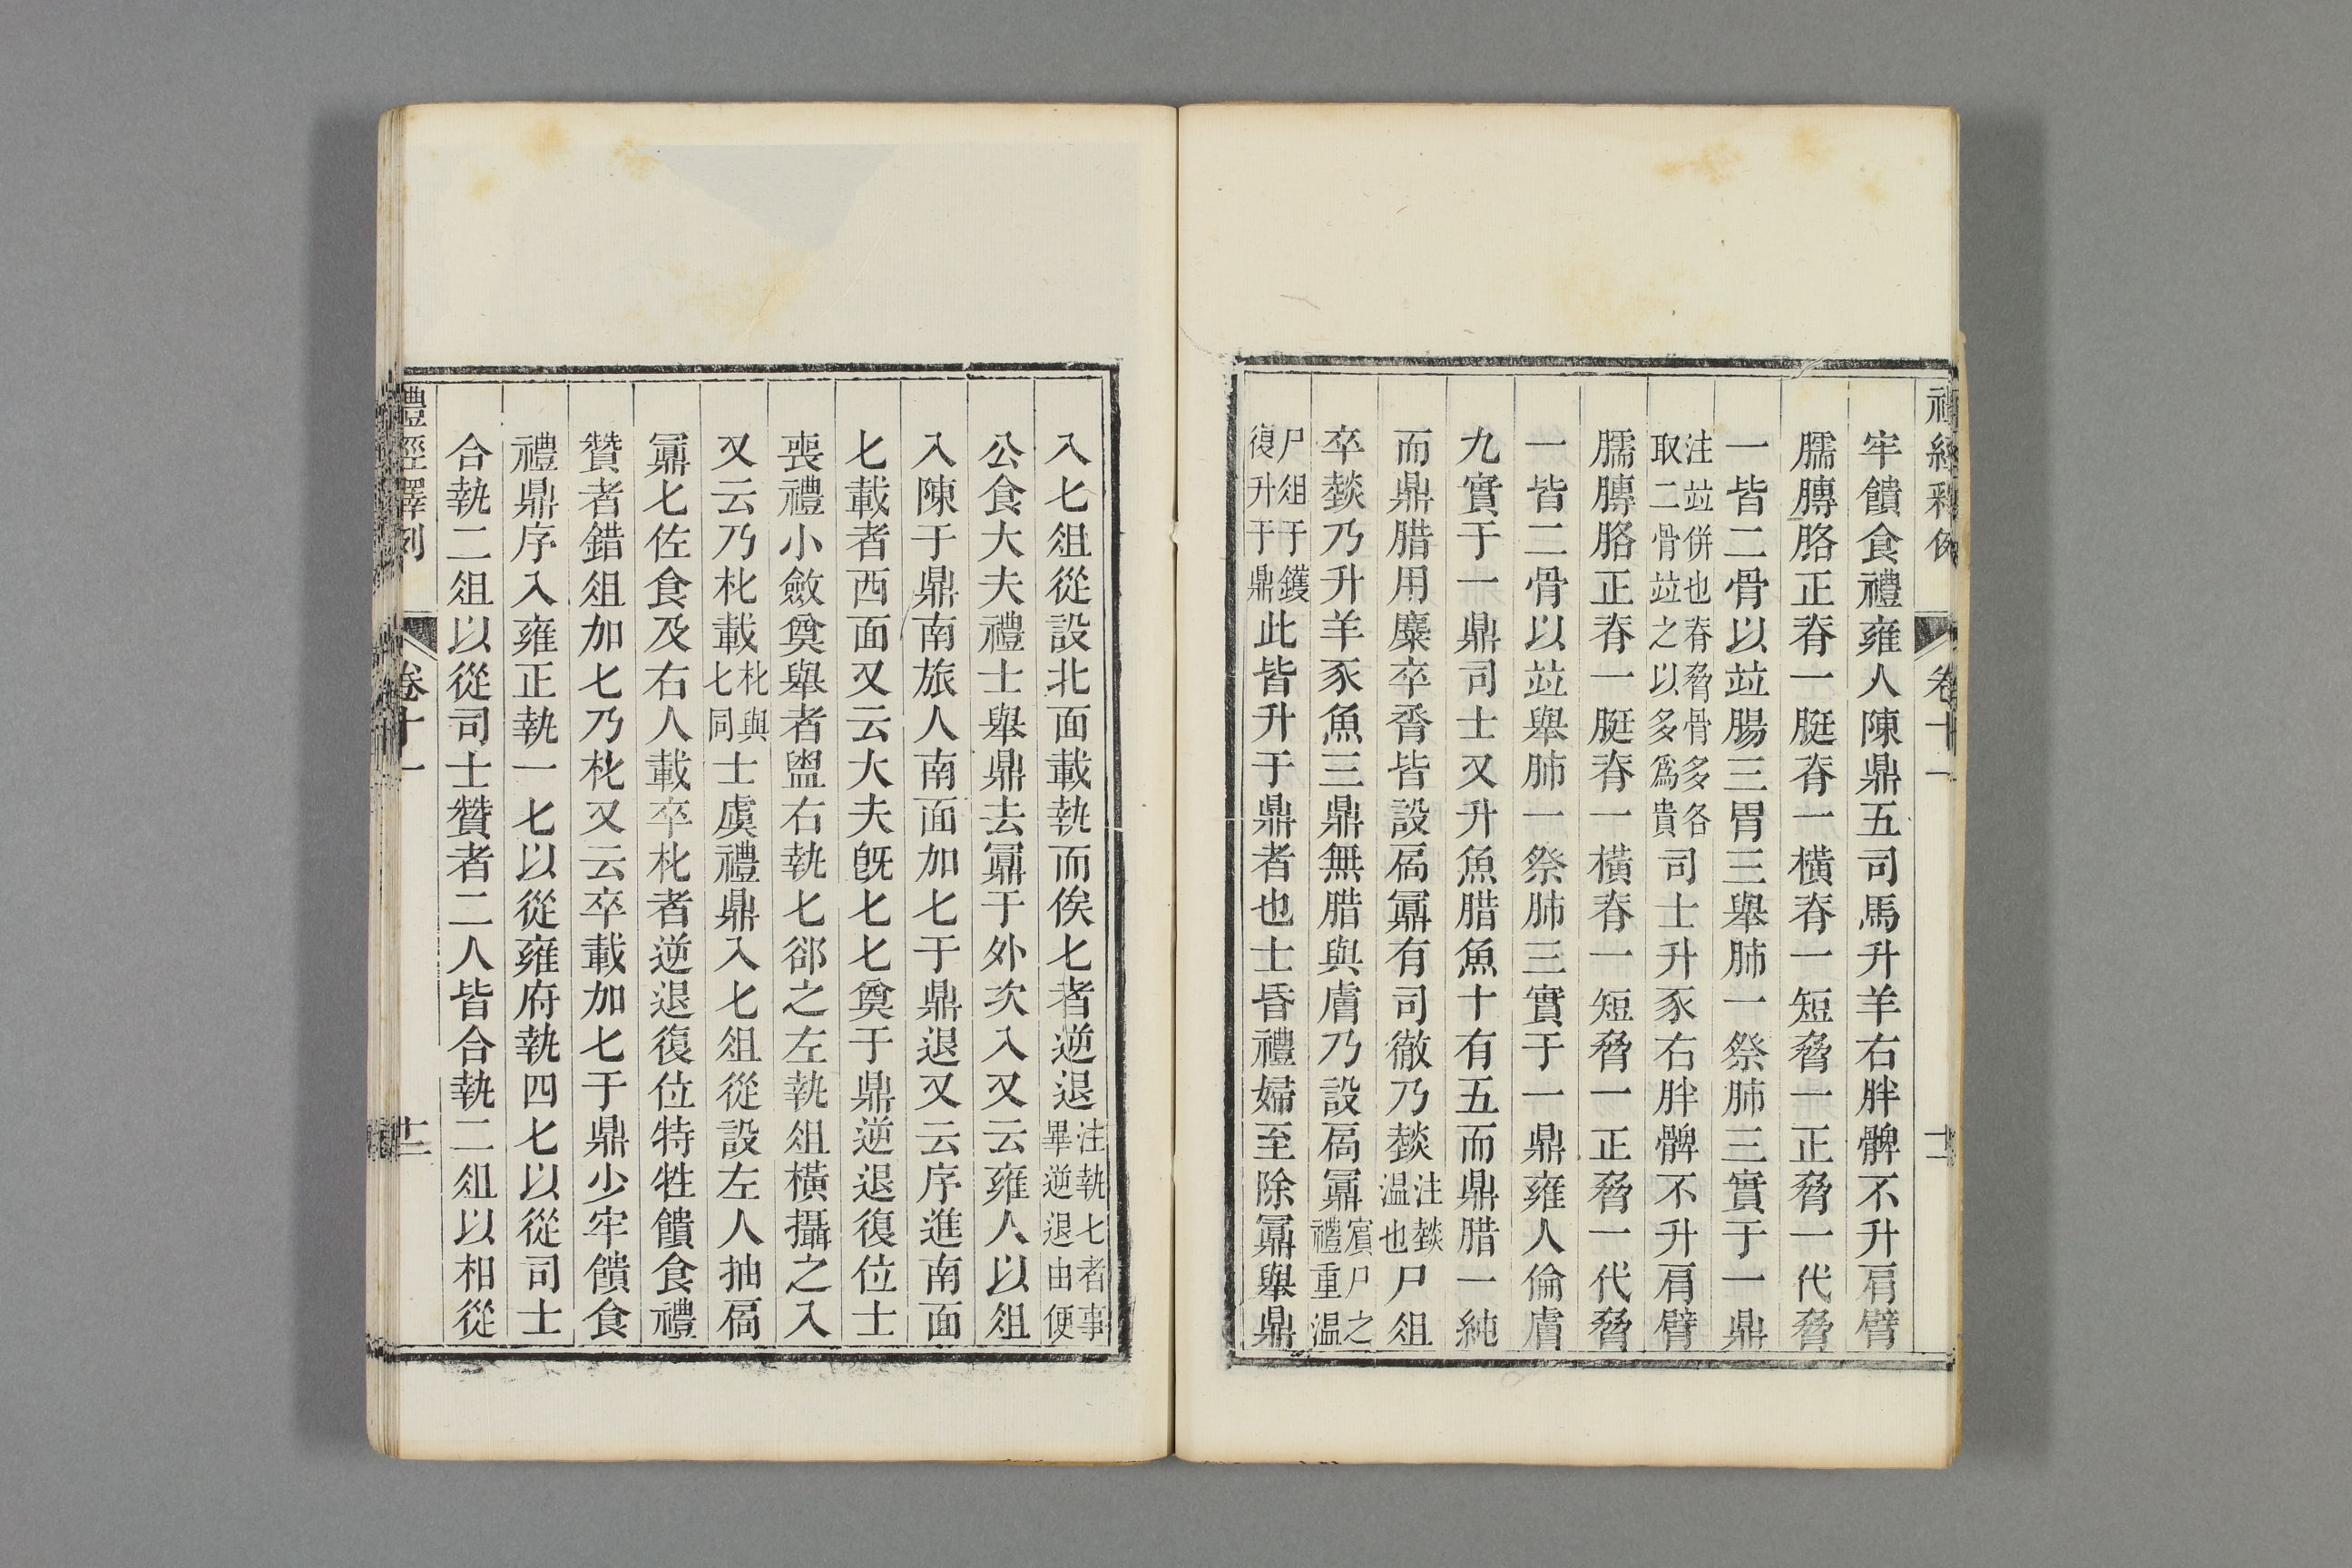 禮經釋例 卷十一 十一
牢饋食禮雍人陳鼎五司馬升羊右胖髀不升肩臂
臑膞胳正脊一脡脊一橫脊一短脅一正脅一代脅
一皆二骨以竝腸三胃三舉肺一祭肺三實于一鼎
注竝併也脊脅骨多各取二骨竝之以多爲貴司士升豕右胖髀不升肩臂
臑膞胳正脊一脡脊一橫脊一短脅一正脅一代脅
一皆二骨以竝舉肺一祭肺三實于一鼎雍人倫膚
九實于一鼎司士又升魚腊魚十有五而鼎腊一純
而鼎腊用麋卒脀皆設扃鼏有司徹乃燅注燅温也尸俎
卒燅乃升羊豕魚三鼎無腊與膚乃設扃鼏賓尸之禮重温
尸俎于鑊復升于鼎此皆升于鼎者也士昏禮婦至除鼏舉鼎
入匕俎從設北面載執而俟匕者逆退注執匕者事畢逆退由便
公食大夫禮士舉鼎去鼏于外次入又云雍人以俎
入陳于鼎南旅人南面加匕于鼎退又云序進南面
匕載者西面又云大夫旣匕匕奠于鼎逆退復位士
喪禮小斂奠舉者盥右執匕郤之左執俎橫攝之入
又云乃朼載朼與匕同士虞禮鼎入匕俎從設左人抽扃
鼏匕佐食及右人載卒朼者逆退復位特牲饋食禮
贊者錯俎加匕乃朼又云卒載加匕于鼎少牢饋食
禮鼎序入雍正執一匕以從雍府執四匕以從司士
合執二俎以從司士贊者二人皆合執二俎以相從
禮經釋例 卷十一 十二